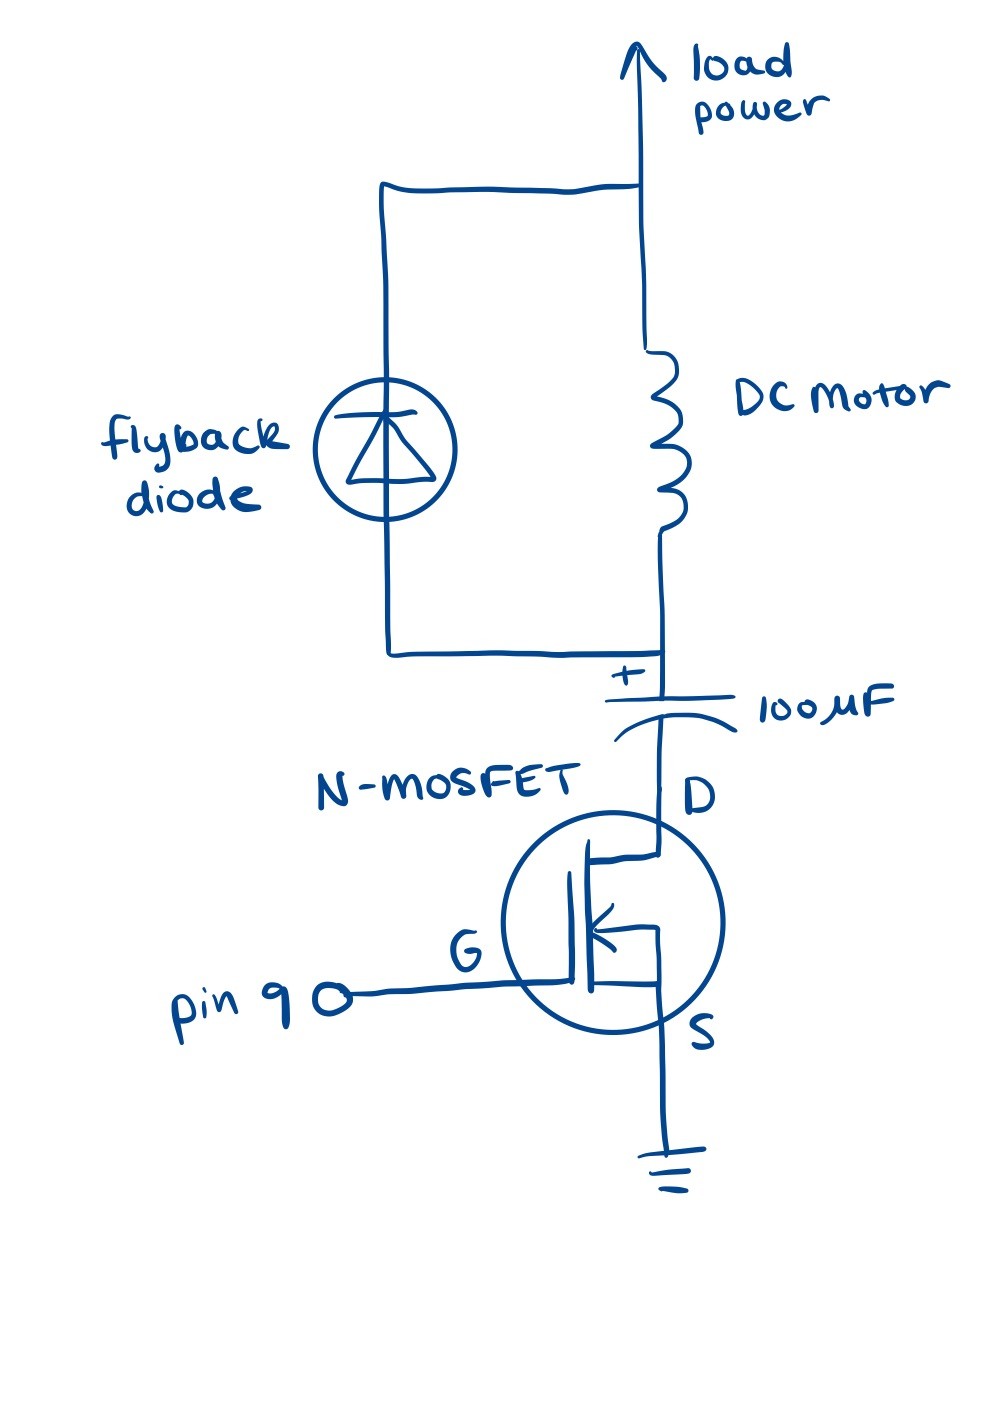 load
power
DC Motor
flyback
diode
+
100µF
N-MOSFET
D
G
pin 9
S